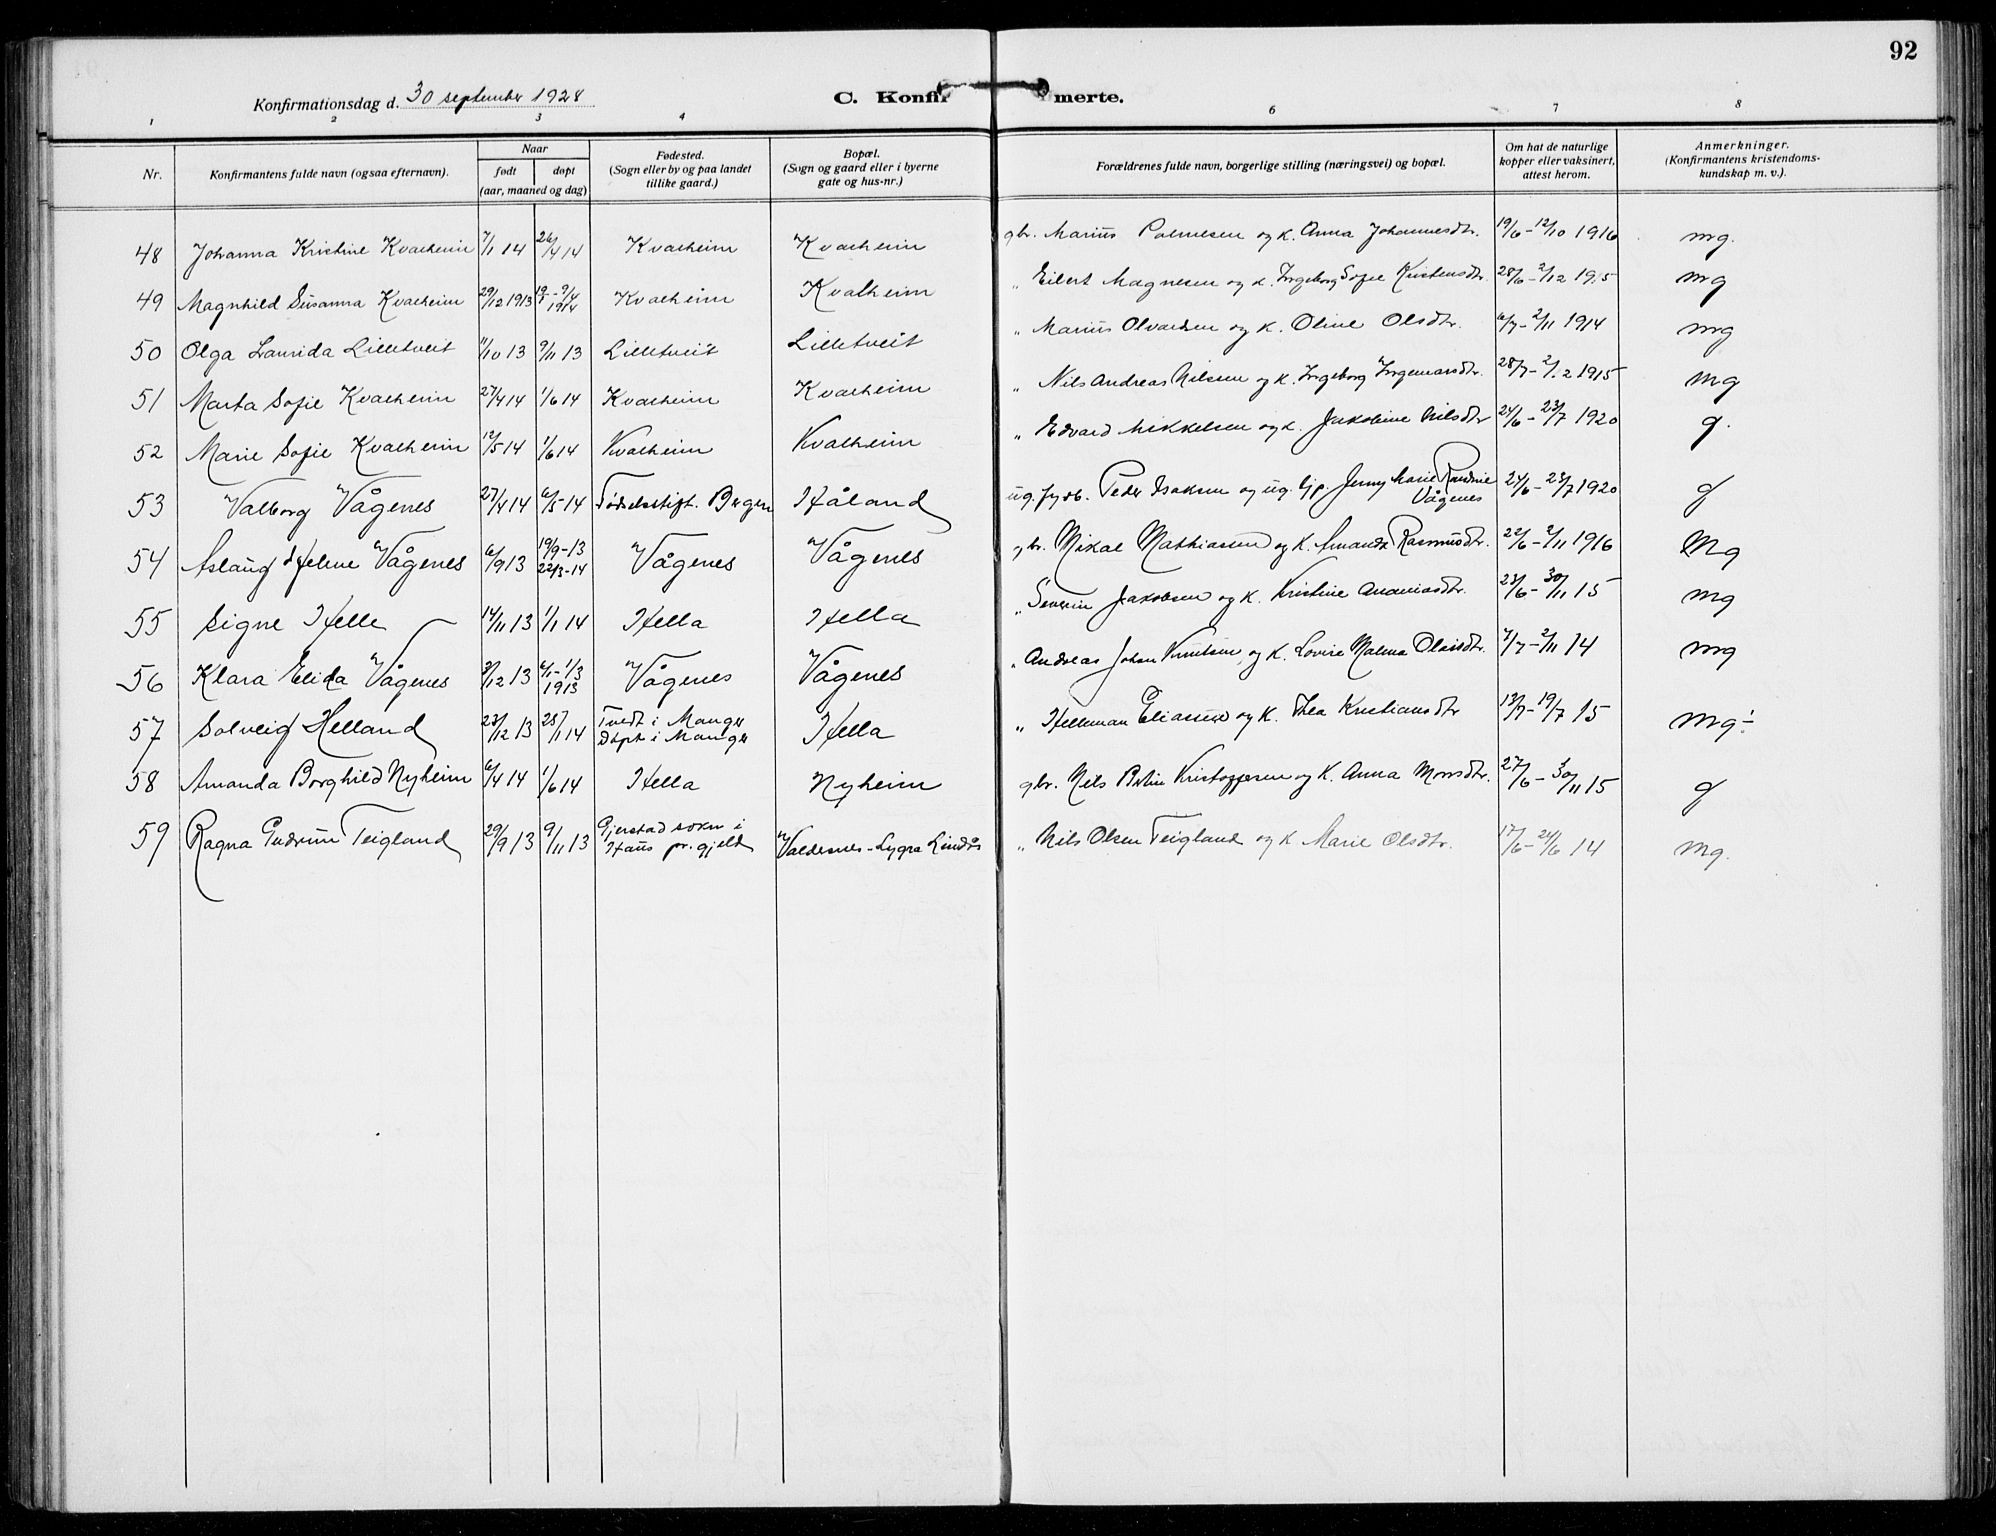 92
Konfirmationsdag d. 30 september 1928
C. Konfir merte.
1 2 3 4 6 7 8
Nr.
Konfirmantens fulde navn (ogsaa efternavn).
Naar
født døpt
(aar, maaned og dag)
Fødested.
(Sogn eller by og paa landet
tillike gaard.)
Bopæl.
(Sogn og gaard eller i byerne
gate og hus-nr.)
Forældrenes fulde navn, borgerlige stilling (næringsvei) og bopæl.
Om hat de naturlige
kopper eller vaksinert,
attest herom.
Anmerkninger.
(Konfirmantens kristendoms-
kundskap m. v.).
48 Johanna Kristine Kvalheim 7/1 14 26/4 14 Kvalheim Kvalheim gbr. Marius Palmesen og k. Anna Johannesdtr. 19/6 - 12/10 1916 mg.
49 Magnhild Susanna Kvalheim 29/12 1913 9/4 1914 Kvalheim Kvalheim " Eilert Magnesen og k. Ingeborg Sofie Kristensdtr. 28/6 - 2/12 1915 mg
50 Olga Laurida Lilletveit 11/10 13 9/11 13 Lilletveit Lilletveit " Marius Olvarsen og k. Oline Olsdtr. 6/7 - 2/11 1914 mg
51 Marta Sofie Kvalheim 27/4 14 1/6 14 Kvalheim Kvalheim " Nils Andreas Nilsen og k. Ingeborg Ingemarsdtr. 28/7 - 2/12 1915 mg
52 Marie Sofie Kvalheim 12/5 14 1/6 14 Kvalheim Kvalheim " Edvard Mikkelsen og k. Jakobine Nilsdtr 24/6 - 23/7 1920 g.
53 Valborg Vågenes 27/4 14 6/5 14 Fødselsstift. Bergen Håland ug. fyrb. Peder Isaksen og ug. tjp. Jenny Marie Randine Vågenes 24/6 - 23/7 1920 g
54 Aslaug Helene Vågenes 6/9 13 19/9-13 22/3-14 Vågenes Vågenes gbr. Mikal Mathiasen og k. Amanda Rasmusdtr. 22/6 - 2/11 1916 Mg
55 Signe Helle 14/11 13 1/1 14 Hella Hella " Severin Jakobsen og k. Kristine Ananiasdtr. 23/6 - 30/11 15 mg
56 Klara Elida Vågenes 3/12 13 6/1 - 1/3 1913 Vågenes Vågenes " Andreas Johan Knutsen, og k. Lovise Malena Olaisdtr. 7/7 - 2/11 14 mg
57 Solveig Helland 23/12 13 25/1 14 Tvedt i Manger Døpt i Manger Hella " Helleman Eliassen og k. Thea Kristiansdtr 13/7 - 19/7 15 mg ÷
58 Amanda Borghild Nyheim 6/4 14 1/6 14 Hella Nyheim gbr. Nils Bertin Kristoffersen og k. Anna Monsdtr. 27/6 - 30/11 15 g
59 Ragna Gudrun Teigland 29/9 13 9/11 13 Gjerstad sokn i Haus pr.gjeld Valdesnes - Lygra Lindås " Nils Olsen Teigland og k Marie Olsdtr. 17/6 - 24/6 14 mg.